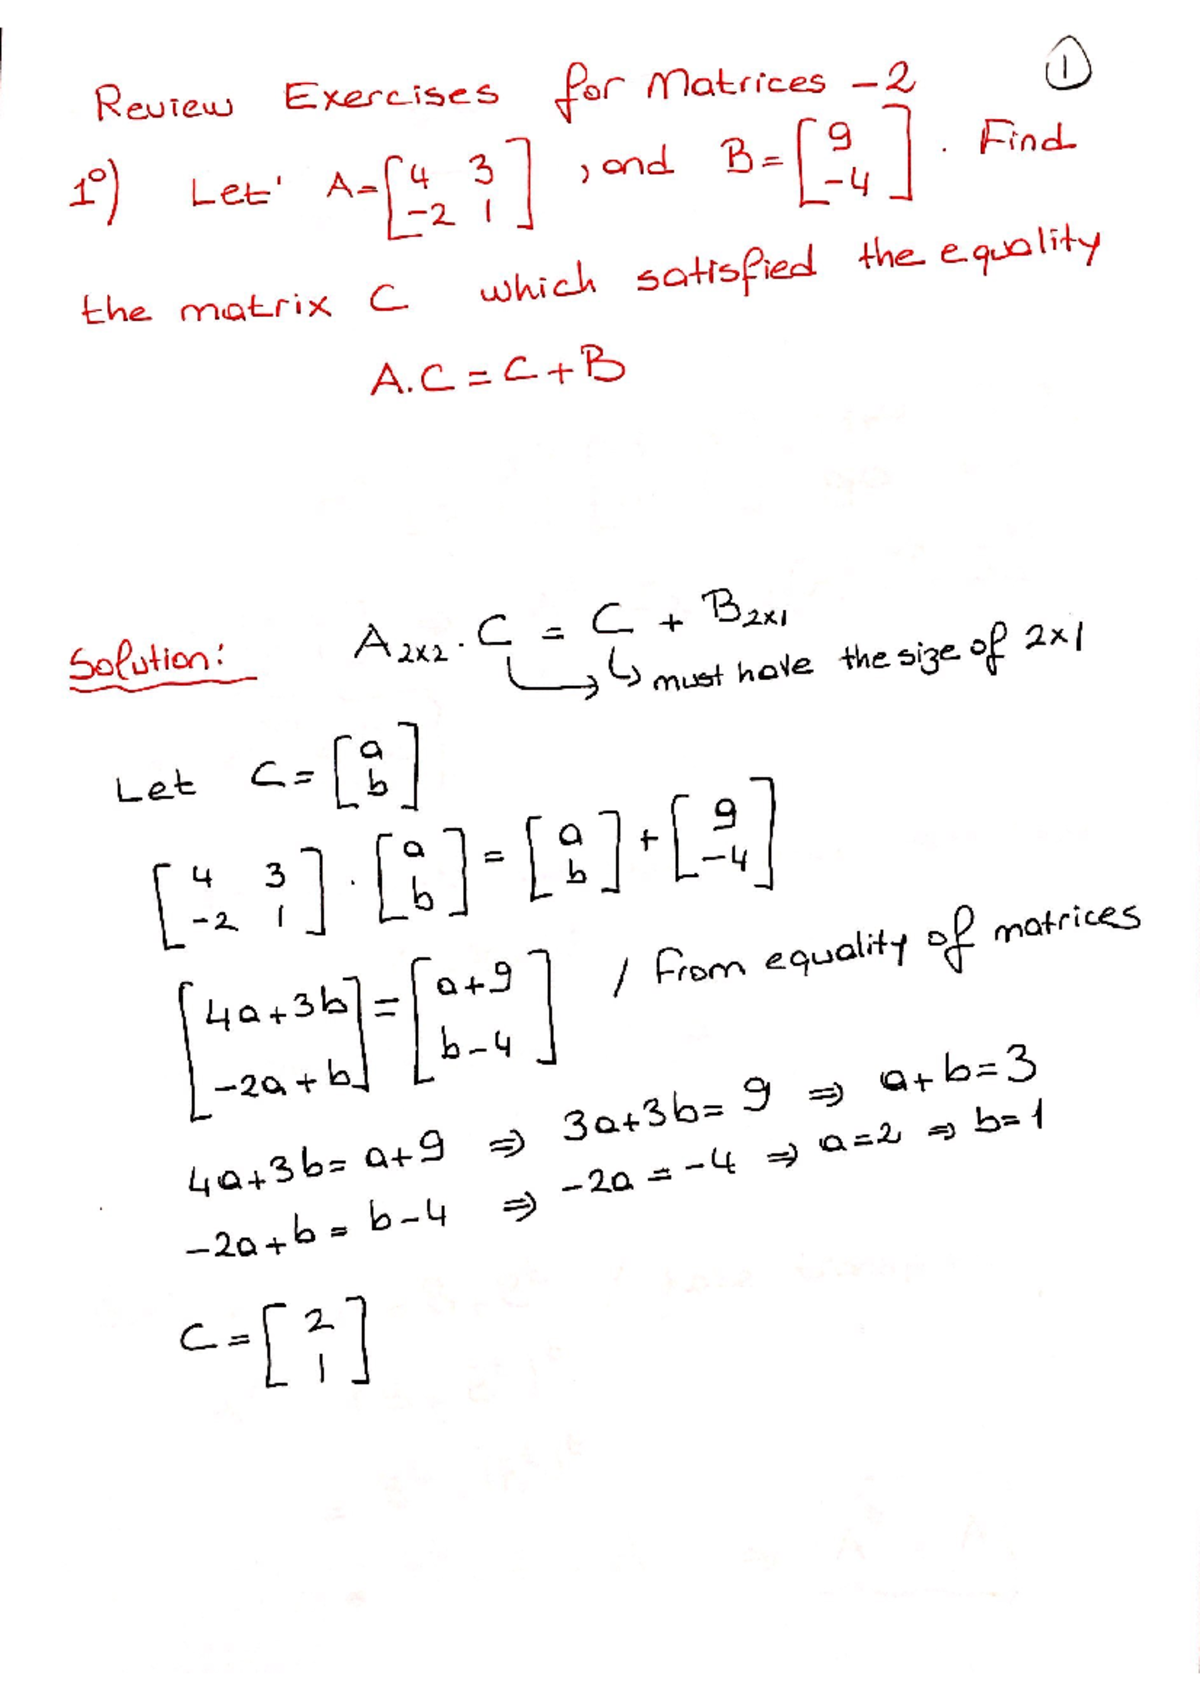 1
Review Exercises for Matrices -2
1°) Let' A=[4 3 -2 1], and B=[9 -4]. Find
the matrix C which satisfied the equality
A.C=C+B
Solution: A2x2.C = C + B2x1
must have the size of 2x1
Let C=[a b]
[4 3 -2 1].[a b]=[a b]+[9 -4]
[4a+3b -2a+b]=[a+9 b-4] / from equality of matrices
4a+3b=a+9 ⇒ 3a+3b=9 ⇒ a+b=3
-2a+b=b-4 ⇒ -2a=-4 ⇒ a=2 ⇒ b=1
C=[2 1]